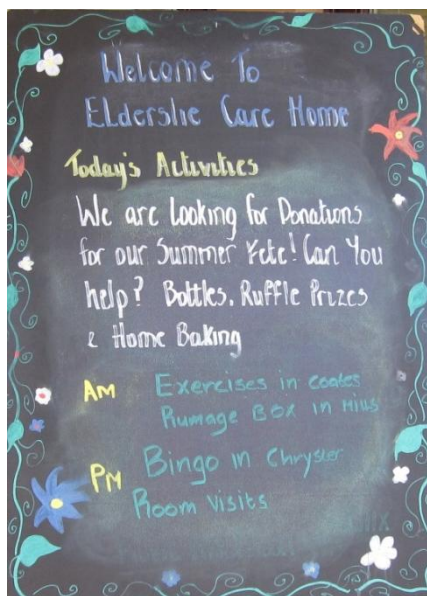 Welcome To
Elderslie Care Home
Today's Activities
We are Looking for Donations
for our Summer Fete! Can You
help? Bottles, Ruffle Prizes
& Home Baking
AM Exercises in coates
Rumage Box in Hills
PM Bingo in Chrysler
Room Visits